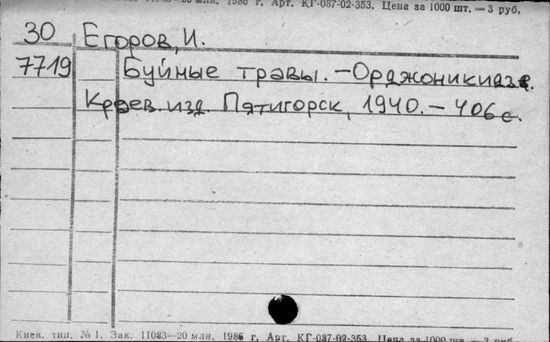 1986 г. Арт. КГ-087-02-353. Цена за 1000 шт. — 3 руб.
30 Егоров, И.
7719 Буйные травы. — Орджоникидзе.
Краев. изд. Пятигорск, 1940. — 406 с.
Киев. тип. № 1. Зак. 11083—20 млн. 1986 г. Арт. КГ-087-02-353. Цена за 1000 шт. — 3 руб.